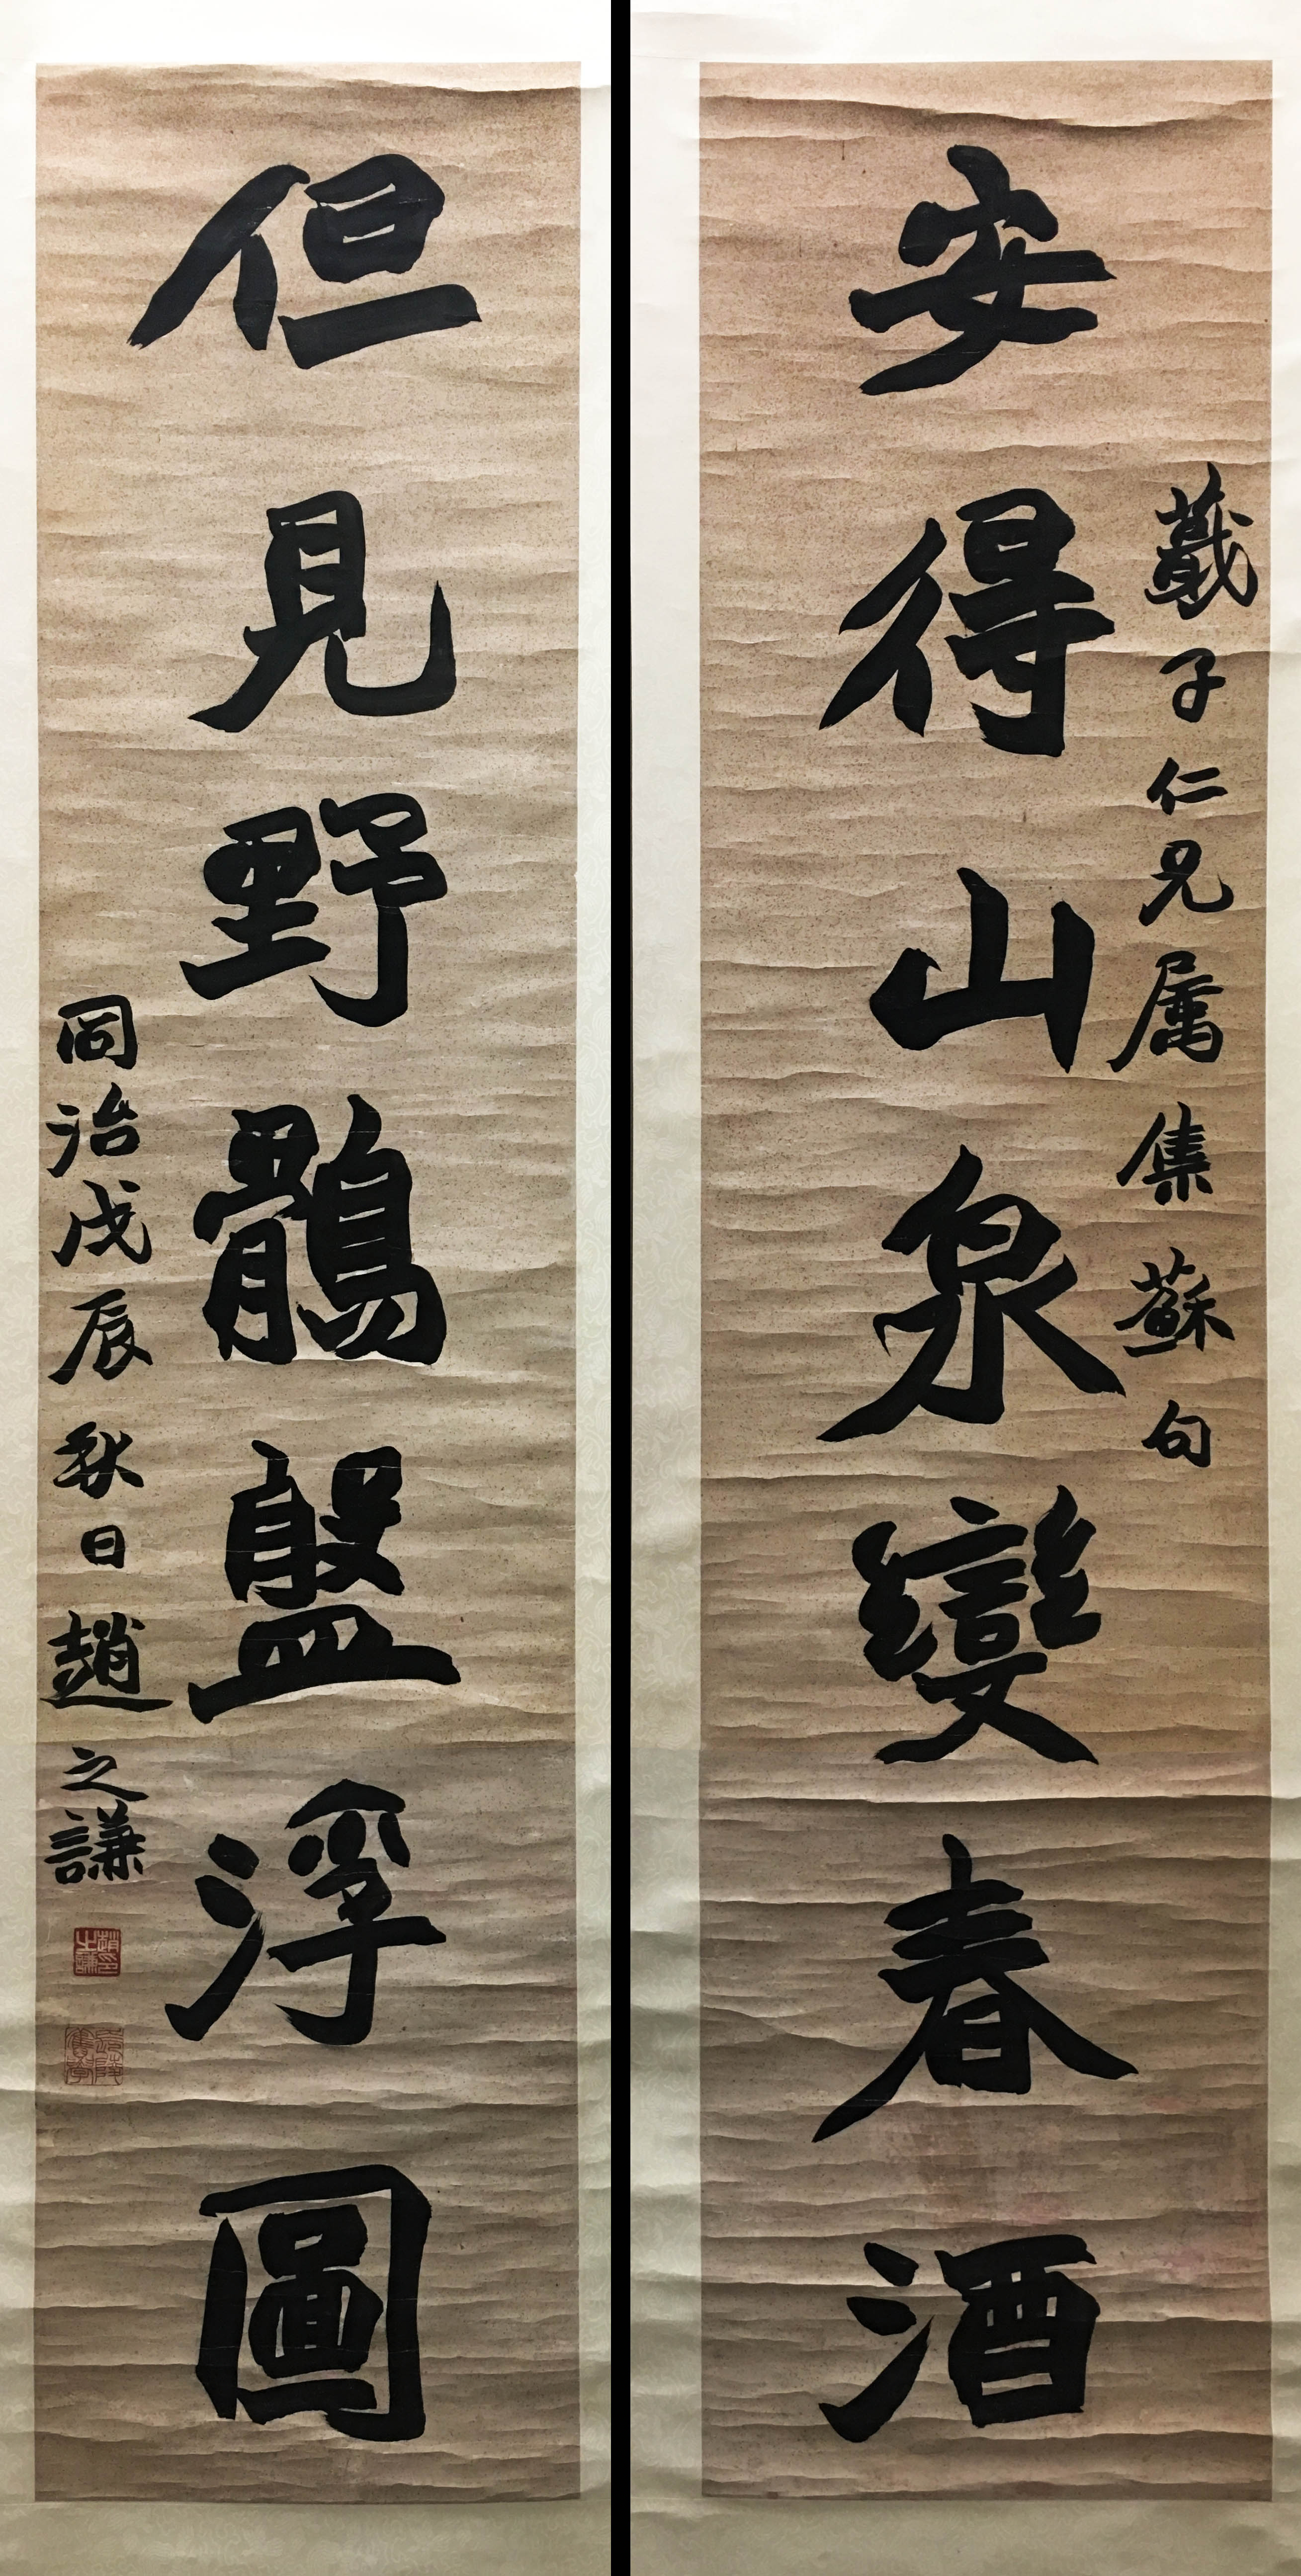 蕺子仁兄属集蘇句
安得山泉變春酒
但見野鶻盤浮圖
同治戊辰秋日趙之謙
趙之謙印